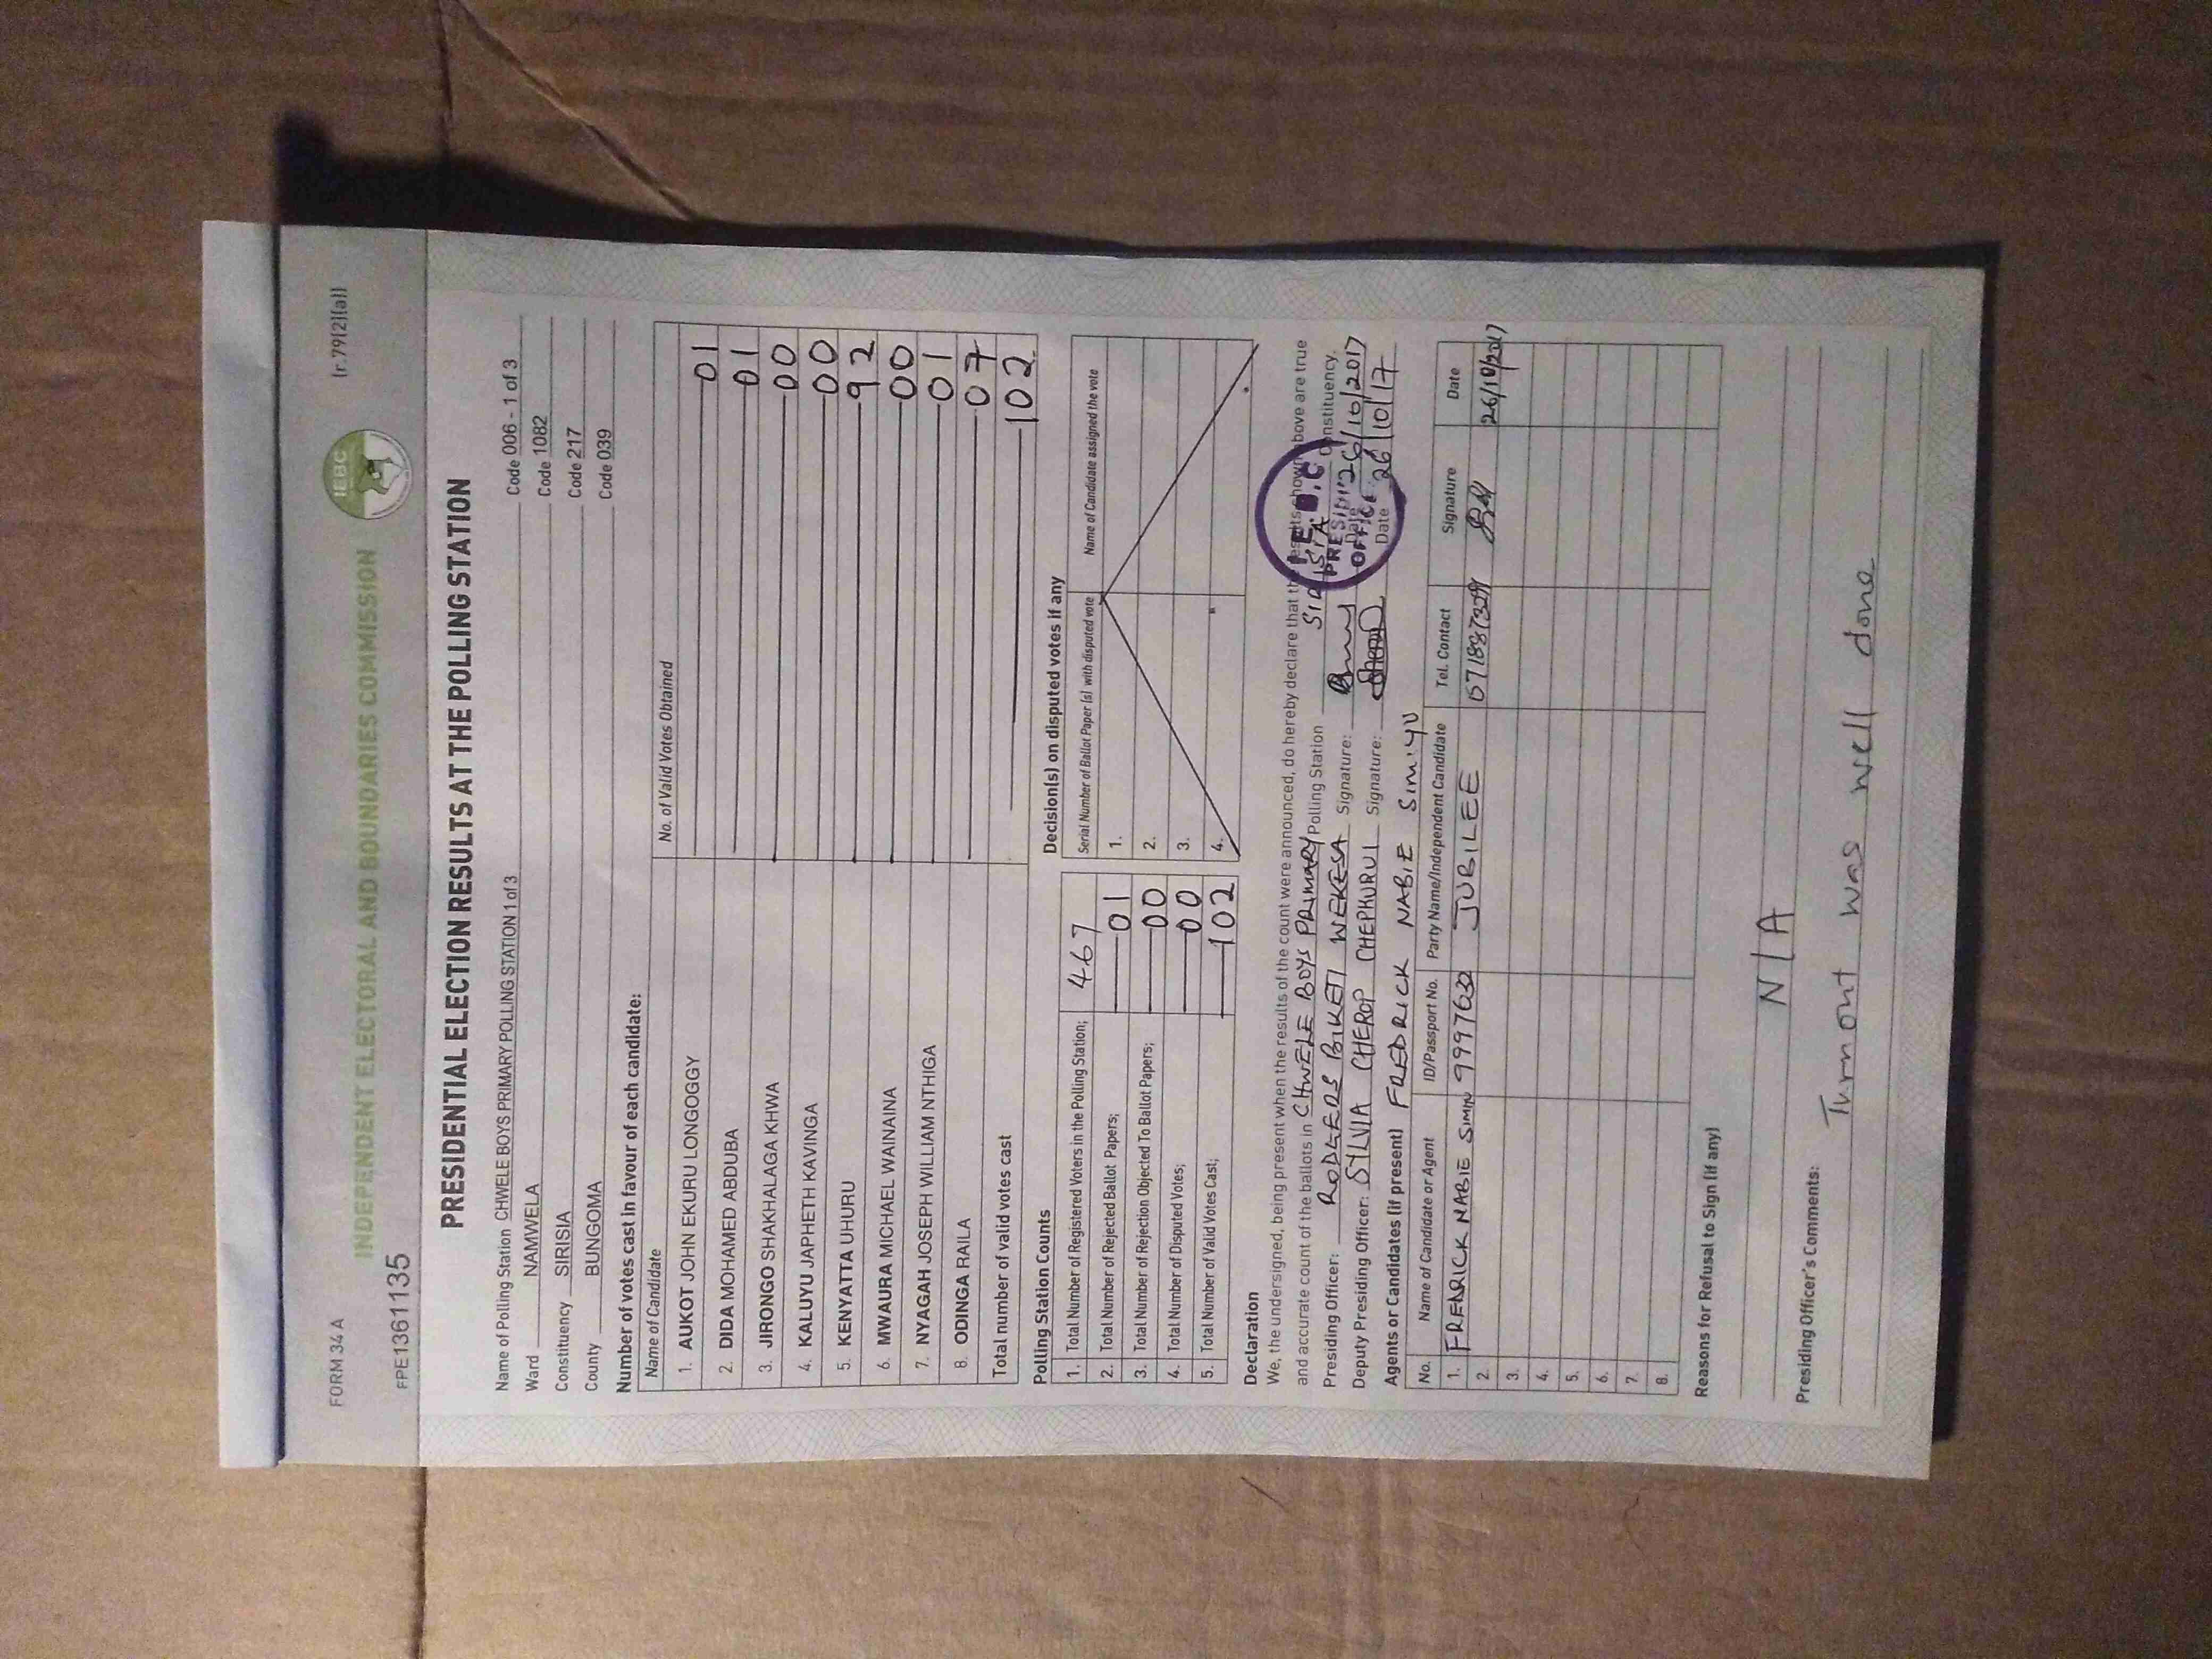 FORM 34 A
(r.79(2)(a))
INDEPENDENT ELECTORAL AND BOUNDARIES COMMISSION
IEBC
FPE1361135
PRESIDENTIAL ELECTION RESULTS AT THE POLLING STATION
Name of Polling Station CHWELE BOYS PRIMARY POLLING STATION 1 of 3 Code 006 - 1 of 3
Ward NAMWELA Code 1082
Constituency SIRISIA Code 217
County BUNGOMA Code 039
Number of votes cast in favour of each candidate:
Name of Candidate No. of Valid Votes Obtained
1. AUKOT JOHN EKURU LONGOGGY 01
2. DIDA MOHAMED ABDUBA 01
3. JIRONGO SHAKHALAGA KHWA 00
4. KALUYU JAPHETH KAVINGA 00
5. KENYATTA UHURU 92
6. MWAURA MICHAEL WAINAINA 00
7. NYAGAH JOSEPH WILLIAM NTHIGA 01
8. ODINGA RAILA 07
Total number of valid votes cast 102
Polling Station Counts
1. Total Number of Registered Voters in the Polling Station; 467
2. Total Number of Rejected Ballot Papers; 01
3. Total Number of Rejection Objected To Ballot Papers; 00
4. Total Number of Disputed Votes; 00
5. Total Number of Valid Votes Cast; 102
Decision(s) on disputed votes if any
Serial Number of Ballot Paper (s) with disputed vote Name of Candidate assigned the vote
1.
2.
3.
4.
Declaration
We, the undersigned, being present when the results of the count were announced, do hereby declare that the results shown above are true
and accurate count of the ballots in CHWELE BOYS PRIMARY Polling Station SIRISIA Constituency.
Presiding Officer: RODGERS BIKETI WEKESA Signature: Date 26/10/2017
Deputy Presiding Officer: SYLVIA CHEROP CHEPKURUI Signature: Date 26/10/17
I.E.B.C
PRESIDING
OFFICE
Agents or Candidates (if present) FREDRICK NABIE SIMIYU
No. Name of Candidate or Agent ID/Passport No. Party Name/Independent Candidate Tel. Contact Signature Date
1. FREDRICK NABIE 9997632 JUBILEE 26/10/2017
2.
3.
4.
5.
6.
7.
8.
Reasons for Refusal to Sign (if any)
N/A
Presiding Officer's Comments:
Turnont was well done